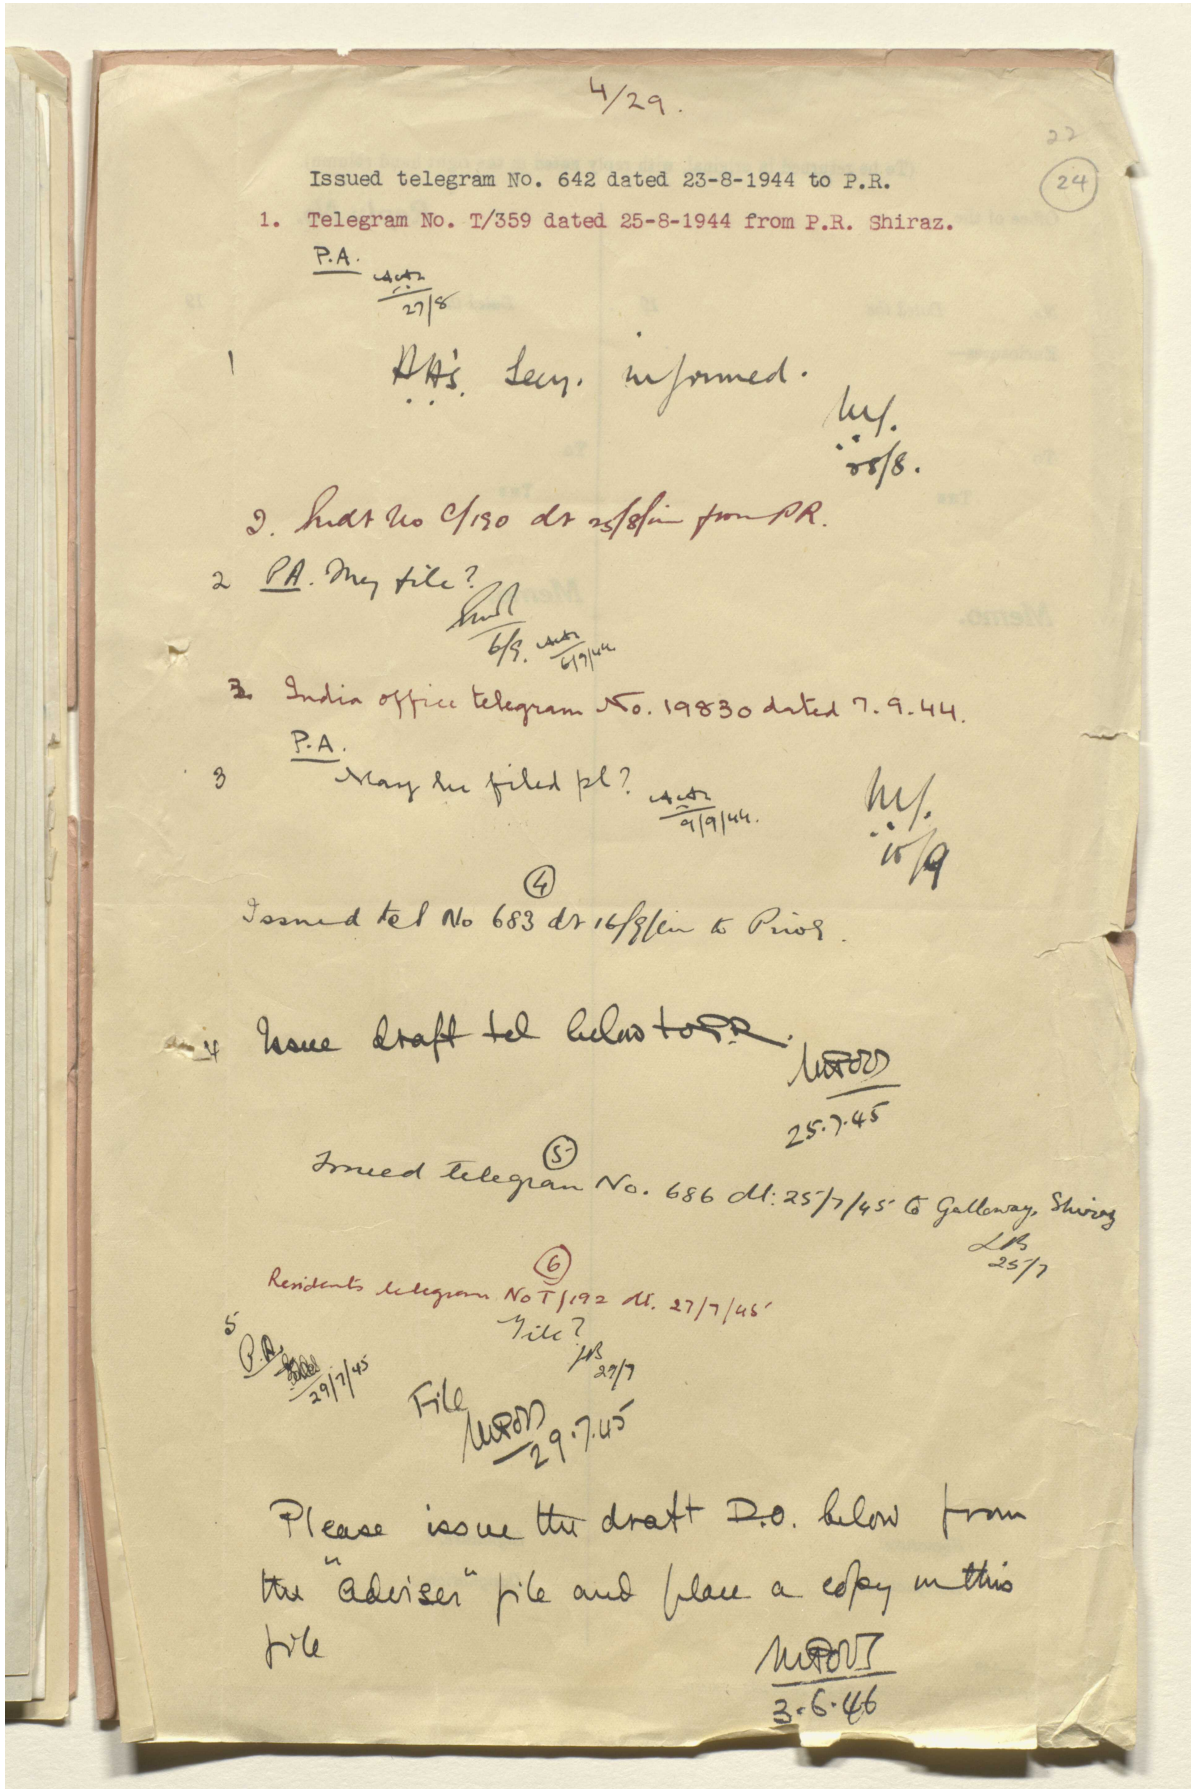 4/29.
22
24
Issued telegram No. 642 dated 23-8-1944 to P.R.
1. Telegram No. T/359 dated 25-8-1944 from P.R. Shiraz.
P.A.
27/8
1
HH's Secy. informed.
28/8.
2. No C/190 dt 25/8/ from PR.
2 PA. May file?
6/9.
6/9/44
3. India office telegram No. 19830 dated 7.9.44.
P.A.
3 May be filed pl?
9/9/44.
10/9
4
Issued tel No 683 dt 16/9/ to Prior.
4 Issue draft tel below to P.R.
25.7.45
5
Issued telegram No. 686 dt: 25/7/45 to Galloway, Shiraz
25/7
6
Residents telegram No T/192 dt. 27/7/45
File?
27/7
5
P.A.
29/7/45
File
29.7.45
Please issue the draft D.O. below from
the "adviser" file and place a copy in this
file
3.6.46
Memo.